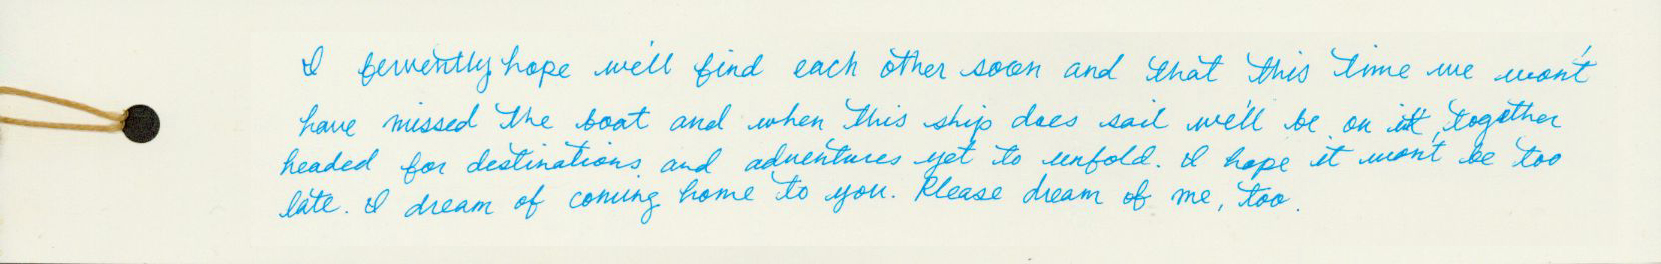 I fervently hope we'll find each other soon and that this time we won't
have missed the boat and when this ship does sail we'll be on it, together
headed for destinations and adventures yet to unfold. I hope it won't be too
late. I dream of coming home to you. Please dream of me, too.